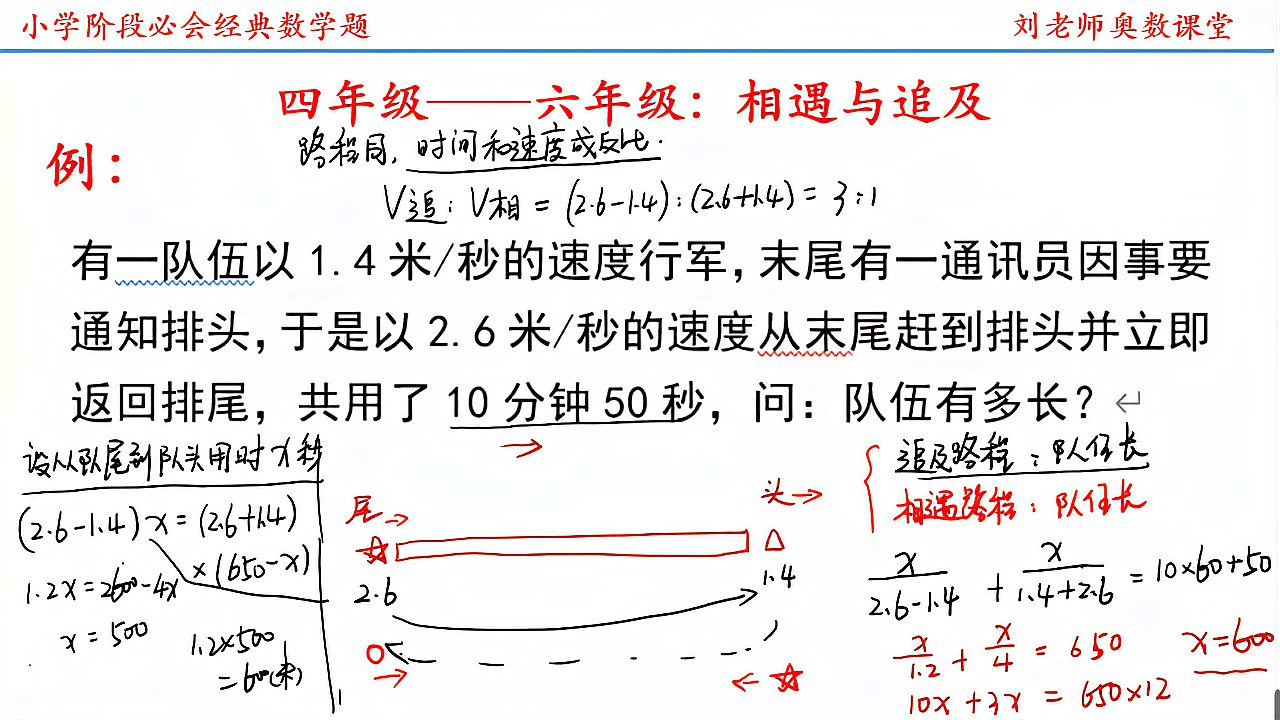 小学阶段必会经典数学题
刘老师奥数课堂
四年级——六年级：相遇与追及
例：
路程同，时间和速度成反比．
V追：V相 = (2.6-1.4):(2.6+1.4) = 3:1
有一队伍以 1.4 米/秒的速度行军，末尾有一通讯员因事要
通知排头，于是以 2.6 米/秒的速度从末尾赶到排头并立即
返回排尾，共用了 10 分钟 50 秒，问：队伍有多长？
设从队尾到队头用时 x 秒
(2.6-1.4)x = (2.6+1.4)
×(650-x)
1.2x = 2600-4x
x = 500
1.2×500
= 600(米)
尾→
头→
2.6
1.4
追及路程：队伍长
相遇路程：队伍长
x/(2.6-1.4) + x/(1.4+2.6) = 10×60+50
x/1.2 + x/4 = 650
x=600
10x + 3x = 650×12